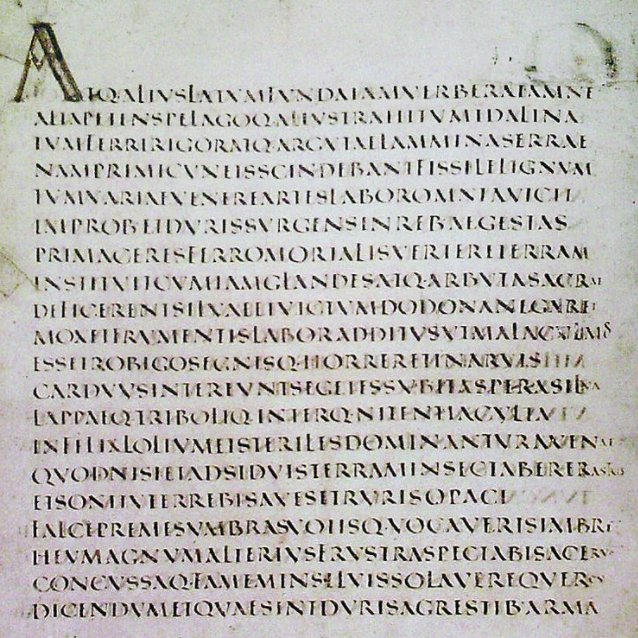 ATQ·ALIVSLATVMFVNDAIAMVERBERATAMNE
ALTAPETENSPELAGOQ·ALIVSTRAHITVMIDALINA
TVMFERRIRIGORATQ·ARGVTAELAMMINASERRAE
NAMPRIMICVNEISSCINDEBANTFISSILELIGNVM
TVMVARIAEVENEREARTESLABOROMNIAVICIT
IMPROB·ETDVRISSVRGENSINREB·AEGESTAS
PRIMACERESFERROMORTALISVERTERETERRAM
INSTITVITCVMIAMGLANDESATQ·ARBVTASACRAE
DEFICERENTSILVAEETVICTVMDODONANEGARET
MOXETFRVMENTISLABORADDITVSVTMALACVLMOS
ESSETROBIGOSEGNISQ·HORRERETINARVIS
CARDVVSINTEREVNTSEGETESSVBITASPERASILVA
LAPPAEQ·TRIBOLIQ·INTERQ·NITENTIACVLTA
INFELIXLOLIVMETSTERILESDOMINANTVRAVENAE
QVODNISIETADSIDVISTERRAMINSECTABERERASTRIS
ETSONITVTERREBISAVESETRVRISOPACI
FALCEPREMESVMBRASVOTISQ·VOCAVERISIMBRE
HEVMAGNVMALTERIVSFRVSTRASPECTABISACERVV
CONCVSSAQ·FAMEMINSILVISSOLAVEREQVERCV
DICENDVMETQVAESINTDVRISAGRESTIB·ARMA